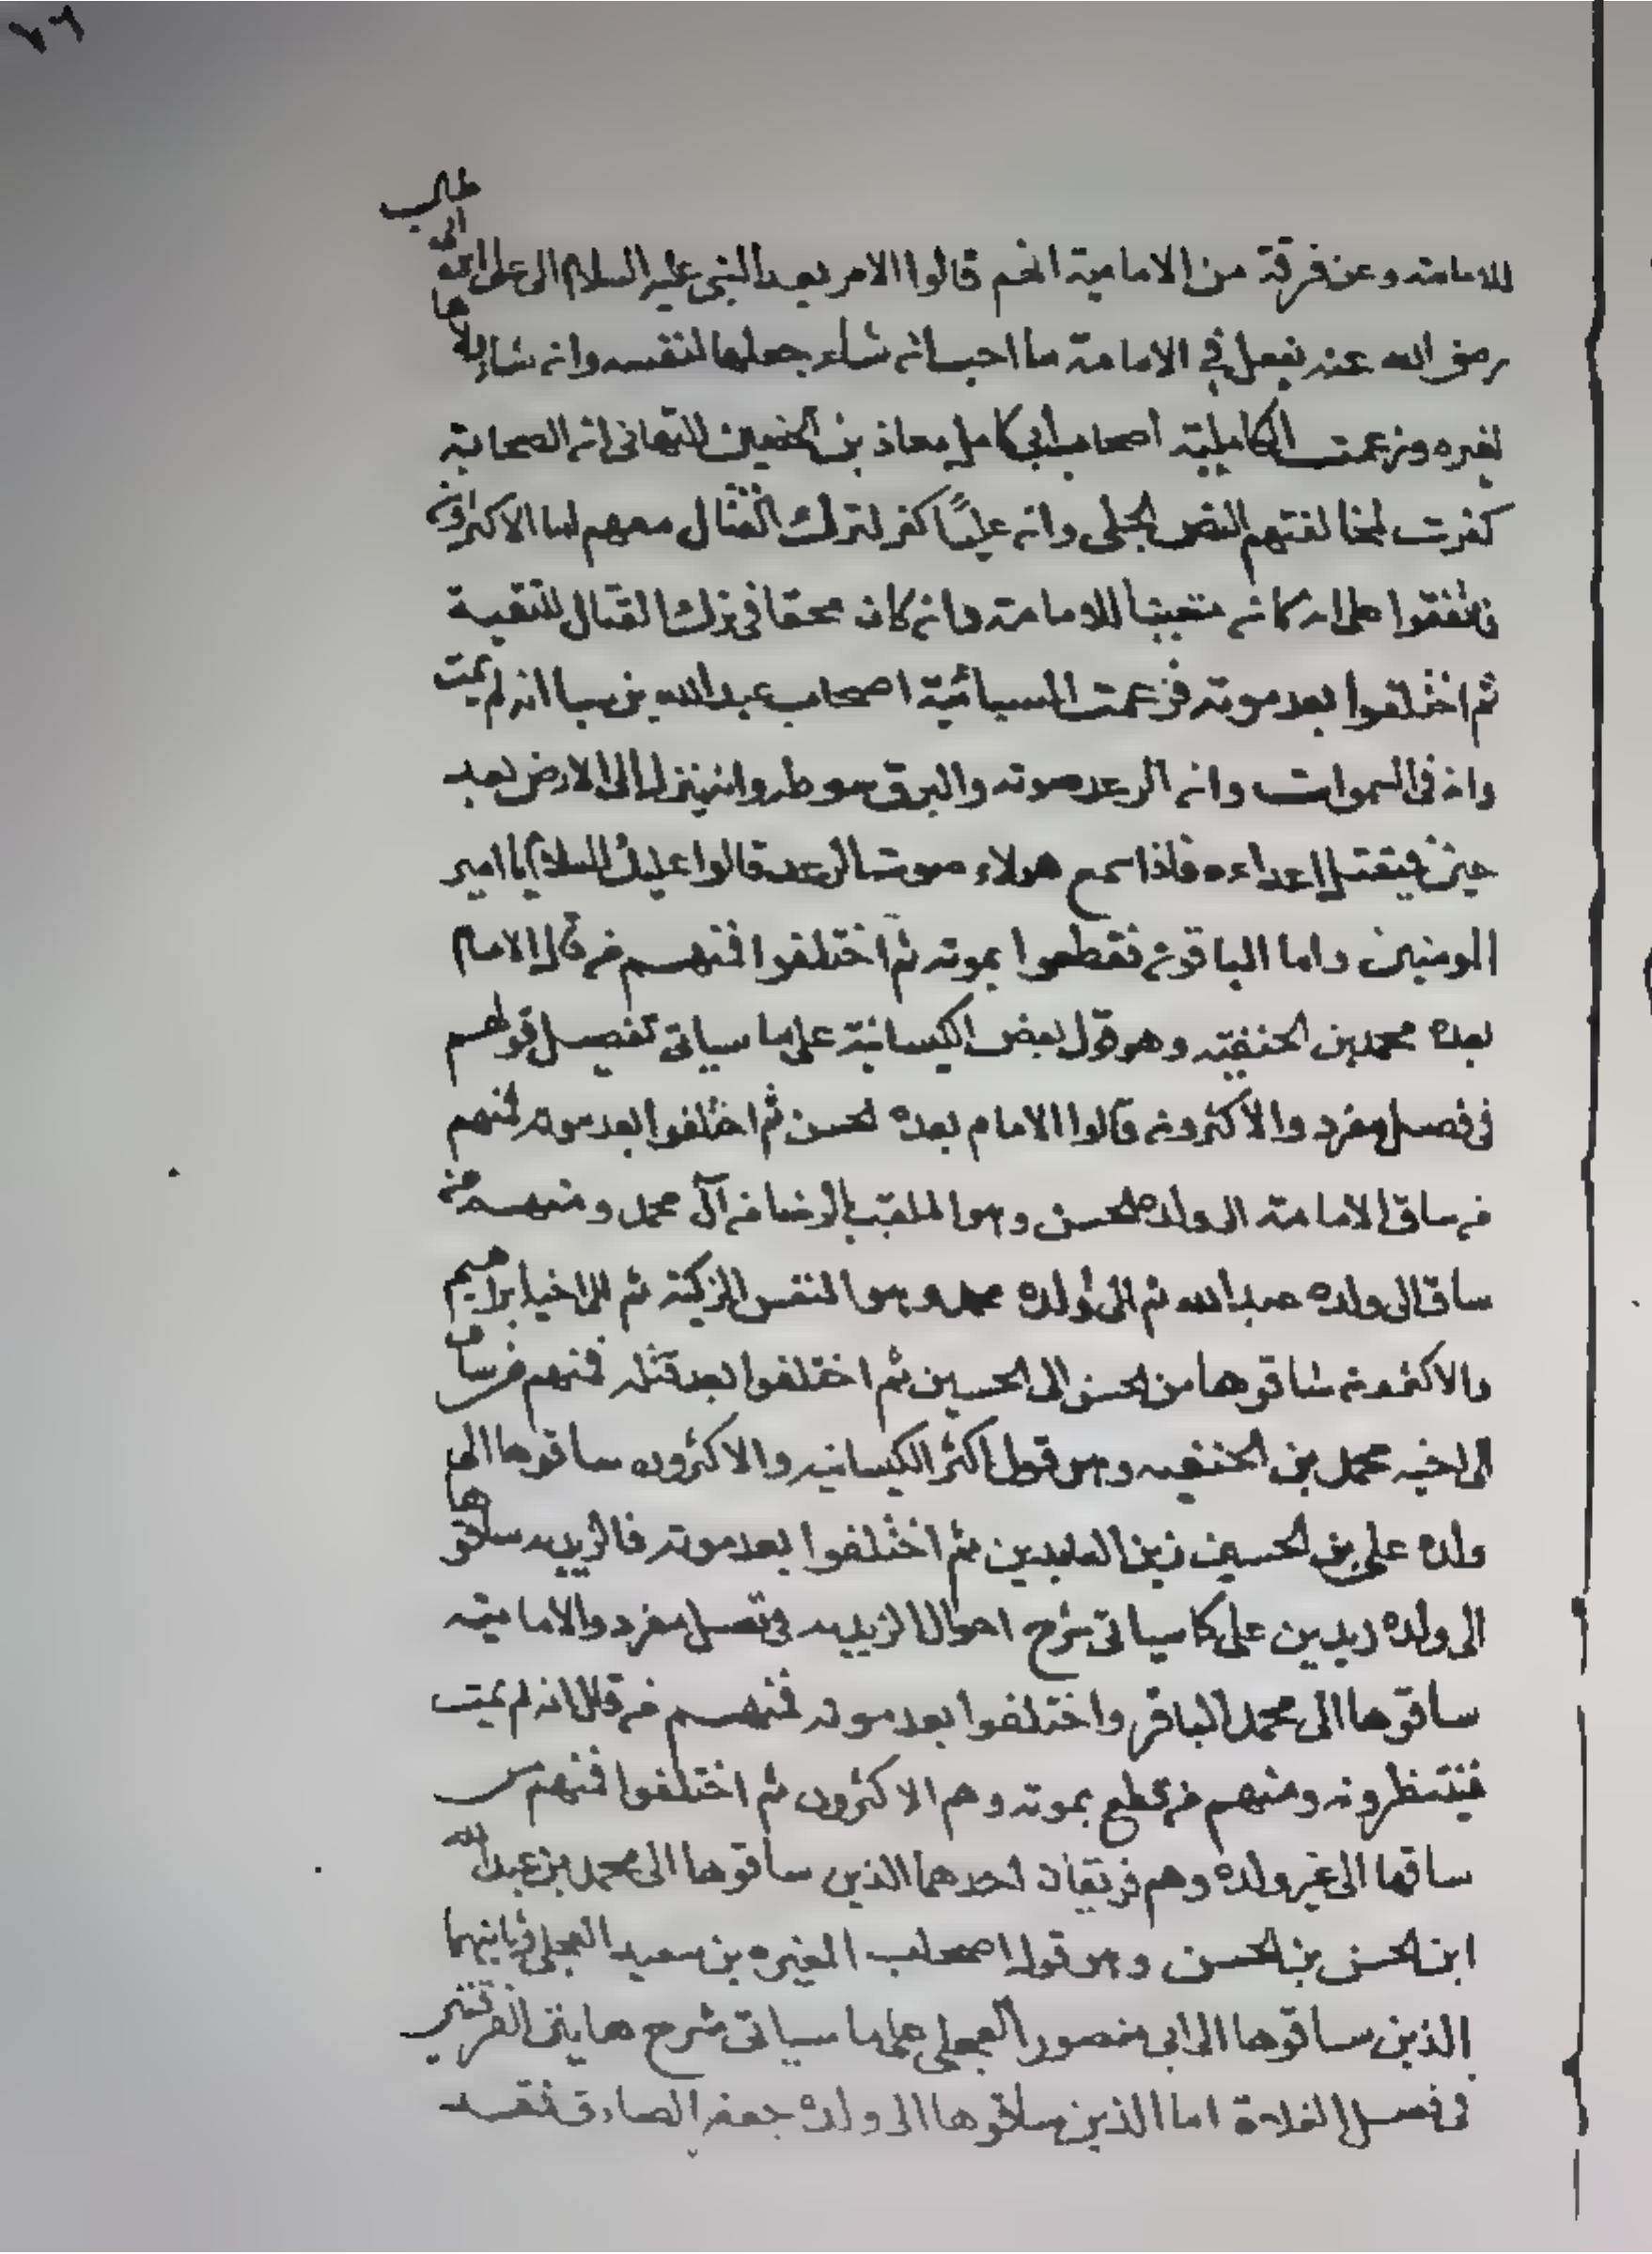 ٧٦
للامامة وعن فرقة من الامامية انهم قالوا الامر بعد النبي عليه السلام الى على ابن ابى طالب
رضى الله عنه يفعل في الامامة ما احب انه شاء جعلها لنفسه وانه شاء ولاها
لغيره وزعمت الكاملية اصحاب ابي كامل معاذ بن الحصين النبهانى انه الصحابة
كفرت لمخالفتهم النص الجلى وانه عليًا كفر لترك القتال معهم اما الاكثرون
فاتفقوا على انه كانه متعينا للامامة وانه كان محقا فى ترك القتال للتقية
ثم اختلفوا بعد موته فزعمت السبائية اصحاب عبد الله بن سبا انه لم يمت
وانه فى السموات وانه الرعد صوته والبرق سوطه وانه ينزل الى الارض بعد
حين فيقتل اعداءه فاذا سمع هولاء صوت الرعد قالوا عليك السلام يا امير
المومنين واما الباقونه فقطعوا بموته ثم اختلفوا فمنهم من قال الامام
بعده محمد بن الحنفيه وهو قول بعض الكيسانية على ما سياتى تفصيل قولهم
فى فصل مفرد والاكثرونه قالوا الامام بعده الحسن ثم اختلفوا بعد موته فمنهم
من ساق الامامة الى ولده الحسن وهو الملقب بالرضا من آل محمد ومنهم من
ساق الى ولده عبد الله ثم الى ولده محمد وهو النفس الزكية ثم الى اخيه ابراهيم
والاكثرونه ساقوها من الحسن الى الحسين ثم اختلفوا بعد قتله فمنهم من ساق
الى اخيه محمد بن الحنفيه وهو قول اكثر الكيسانيه والاكثرون ساقوها الى
ولده على بن الحسين زين العابدين ثم اختلفوا بعد موته فالزيديه ساقوها
الى ولده زيد بن على كما سياتى شرح احوال الزيديه فى فصل مفرد والاماميه
ساقوها الى محمد الباقر واختلفوا بعد موته فمنهم من قال انه لم يمت
فينتظرونه ومنهم من قطع بموته وهم الاكثرون ثم اختلفوا فمنهم من
ساقها الى غير ولده وهم فرقتان احدهما الذين ساقوها الى محمد بن عبد الله
ابن الحسن بن الحسن وهو قول اصحاب المغيره بن سعيد العجلى وثانيهما
الذين ساقوها الى ابى منصور العجلى على ما سياتى شرح هاتين الفرقتين
فى فصل الغلاة اما الذين ساقوها الى ولده جعفر الصادق فقد